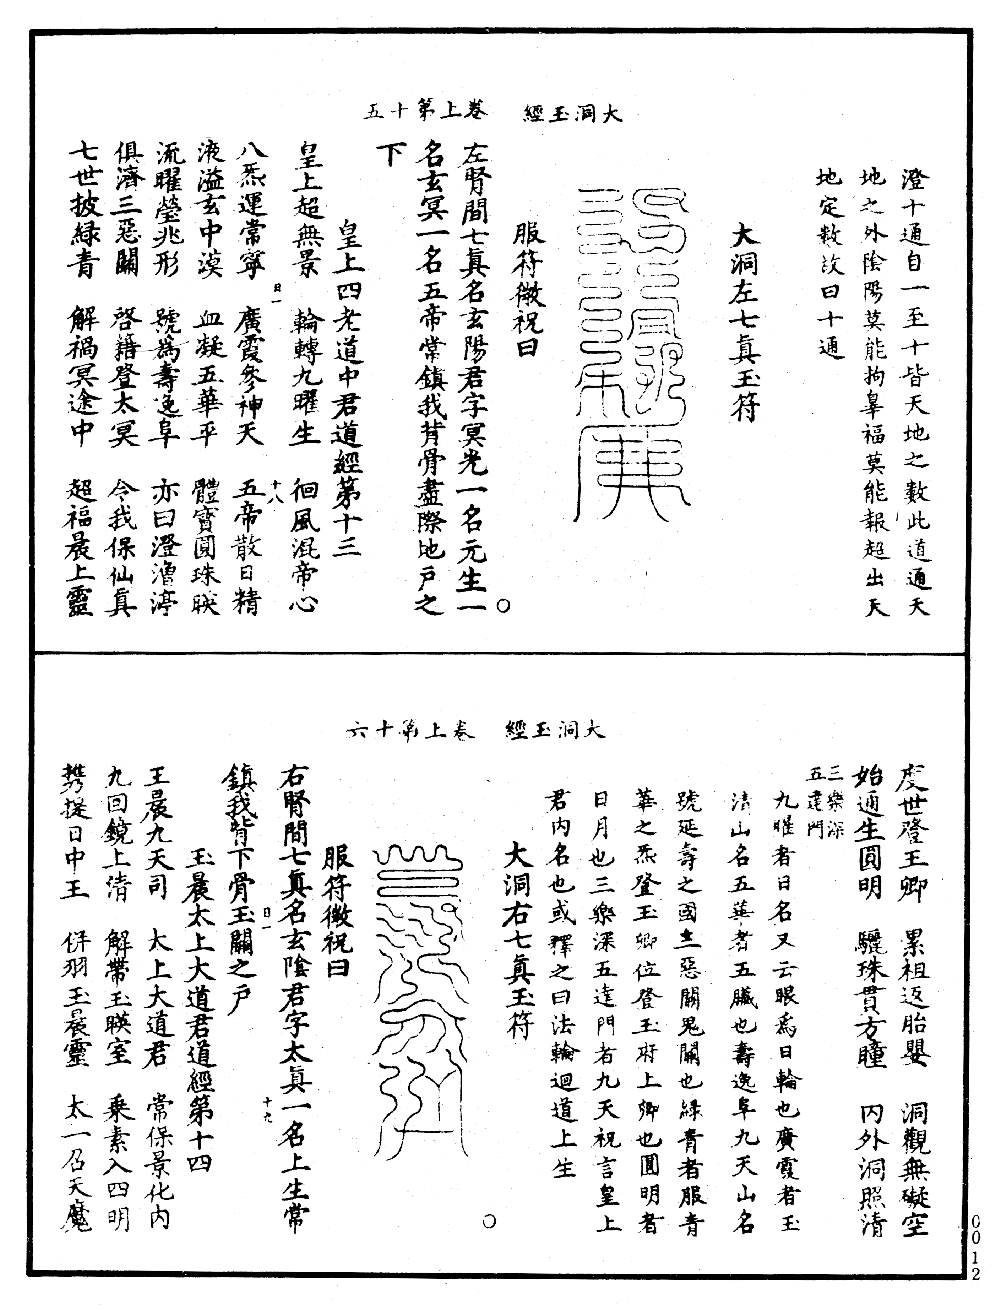 大洞玉經　卷上第十五
澄十通自一至十皆天地之數此道通天
地之外陰陽莫能拘辠福莫能報超出天
地定數故曰十通
大洞左七真玉符
服符微祝曰
左腎間七真名玄陽君字冥光一名元生一
名玄冥一名五帝常鎮我背骨盡際地戶之
下
皇上四老道中君道經第十三
皇上超無景　輪轉九曜生　徊風混帝心
八炁運常寧　廣霞參神天　五帝散日精
日一　十八
液溢玄中漠　血凝五華平　體寶圓珠暎
流曜瑩兆形　號為壽逸阜　亦曰澄瀯渟
俱濟三惡關　啓籍登太冥　令我保仙真
七世披綠青　解禍冥途中　超福晨上靈
大洞玉經　卷上第十六
度世登王卿　累祖返胎嬰　洞觀無礙空
始通生圓明　驪珠貫方瞳　內外洞照清
三樂深
五達門
九曜者日名又云眼為日輪也廣霞者玉
清山名五華者五臟也壽逸阜九天山名
號延壽之國三惡關鬼關也綠青者服青
華之炁登玉卿位登玉府上卿也圓明者
日月也三樂深五達門者九天祝言皇上
君內名也或釋之曰法輪迴道上生
大洞右七真玉符
服符微祝曰
右腎間七真名玄陰君字太真一名上生常
鎮我背下骨玉關之戶
日一　十九
玉晨太上大道君道經第十四
王晨九天司　大上大道君　常保景化內
九回鏡上清　解帶玉暎室　乘素入四明
攜提日中王　併羽玉晨靈　太一召天魔
0012